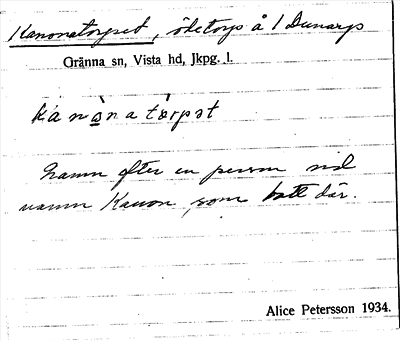 Kanonatorpet, ödetorp å 1 Dunarp
Gränna sn, Vista hd, Jkpg. l.
kánònatòrpət
Namn efter en person vid
namn Kanon, som bott där.
Alice Petersson 1934.